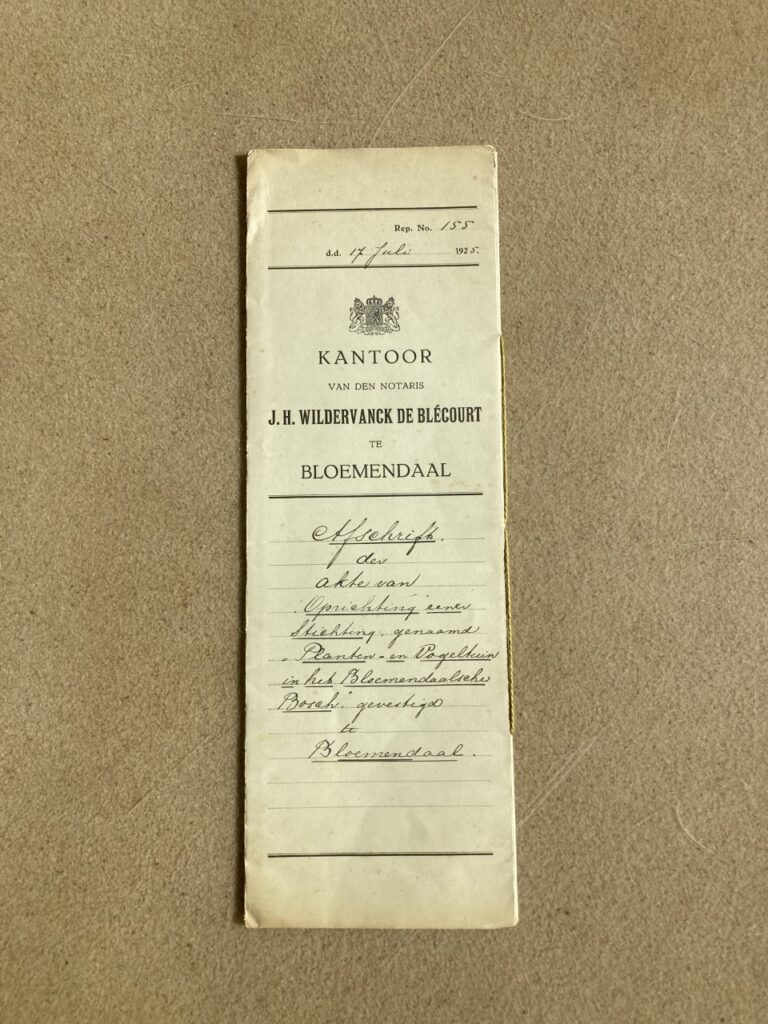 Rep. No. 155
d.d. 17 Juli 1925.
KANTOOR
VAN DEN NOTARIS
J. H. WILDERVANCK DE BLÉCOURT
TE
BLOEMENDAAL
Afschrift.
der
akte van
Oprichting eener
Stichting, genaamd
„Planten- en Vogeltuin
in het Bloemendaalsche
Bosch." gevestigd
te
Bloemendaal.